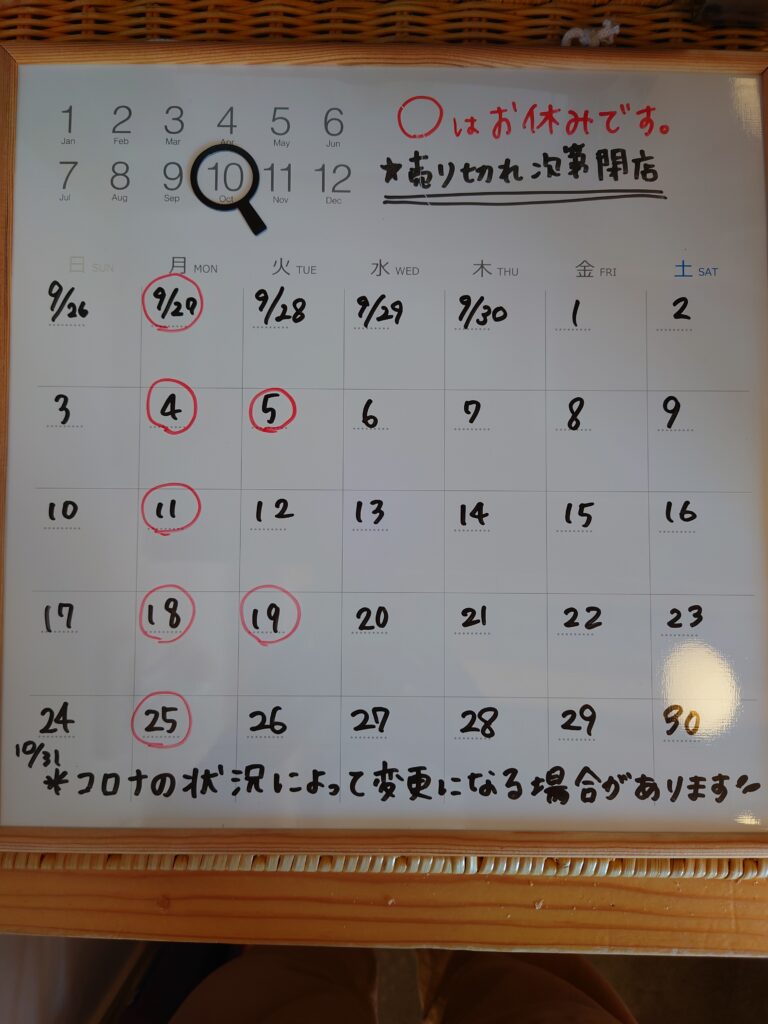 1 2 3 4 5 6
Jan Feb Mar Apr May Jun
7 8 9 10 11 12
Jul Aug Sep Oct Nov Dec
○はお休みです。
*売り切れ次第閉店
日 SUN 月 MON 火 TUE 水 WED 木 THU 金 FRI 土 SAT
9/26 9/27 9/28 9/29 9/30 1 2
3 4 5 6 7 8 9
10 11 12 13 14 15 16
17 18 19 20 21 22 23
24 25 26 27 28 29 30
10/31
*コロナの状況によって変更になる場合があります